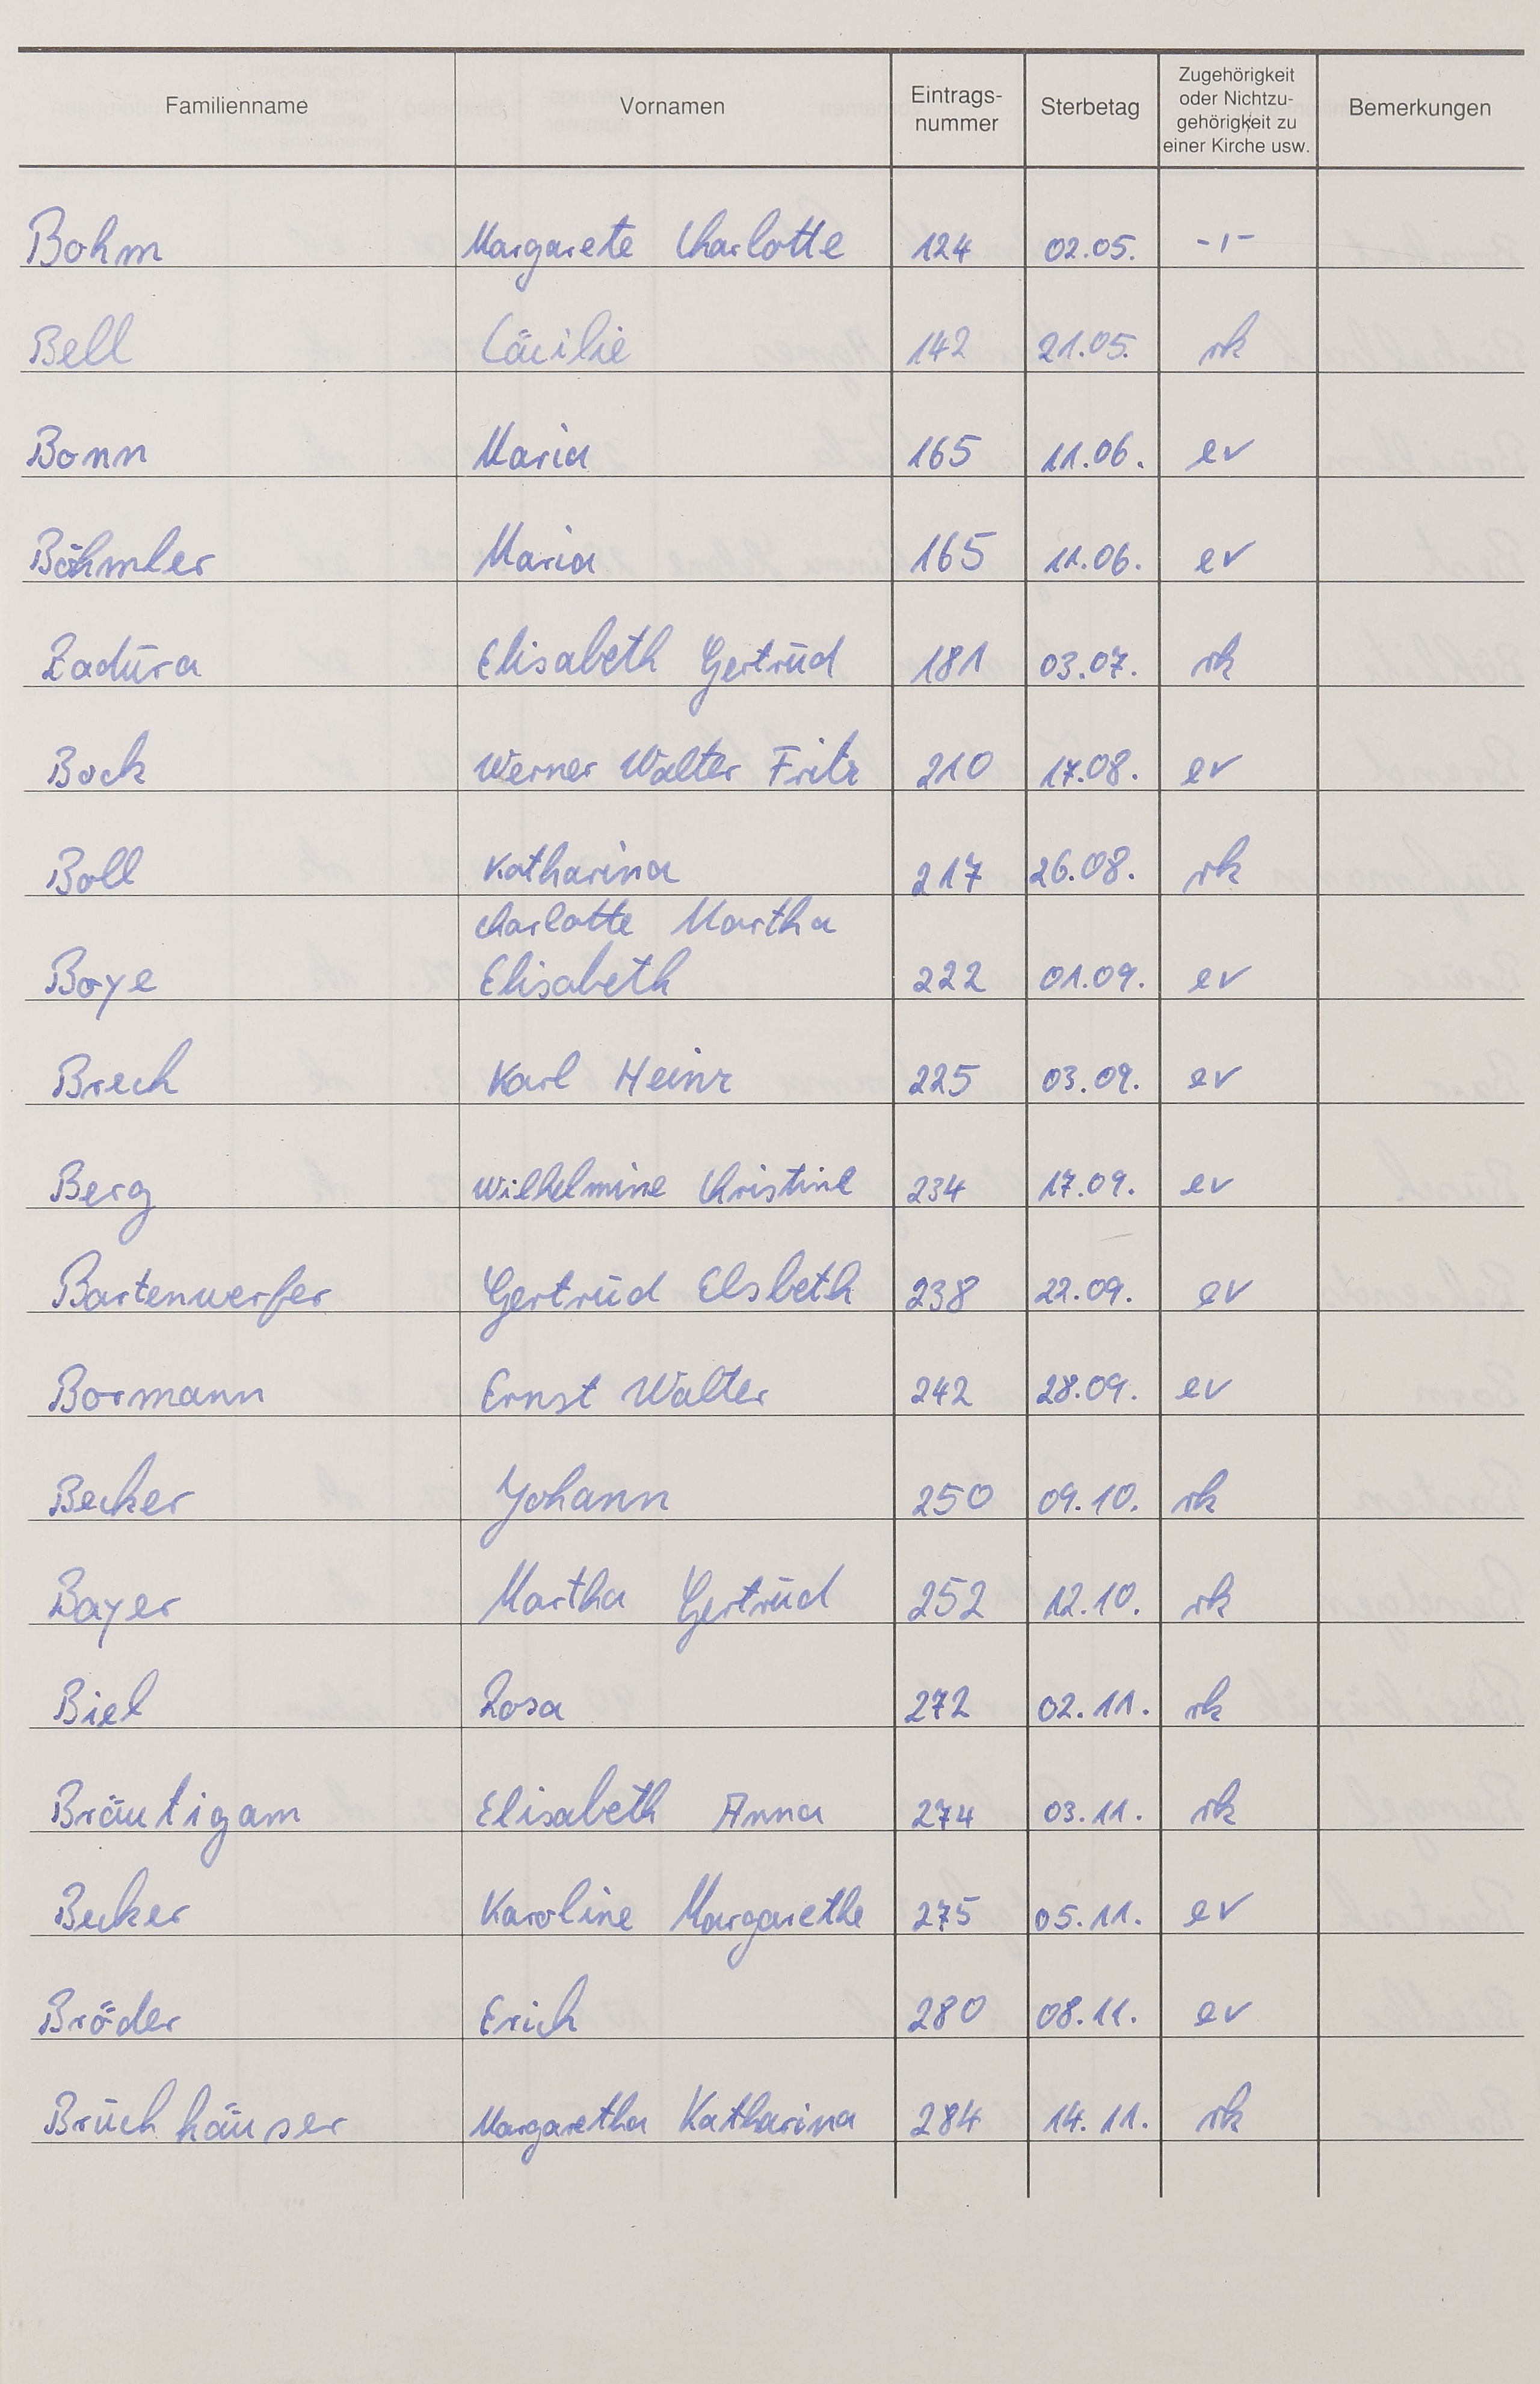 Familienname Vornamen Eintrags-nummer Sterbetag Zugehörigkeit oder Nichtzu-gehörigkeit zu einer Kirche usw. Bemerkungen
Bohm Margarete Charlotte 124 02.05. -,-
Bell Cäcilie 142 21.05. rk
Bonn Maria 165 11.06. ev
Böhmler Maria 165 11.06. ev
Zadura Elisabeth Gertrud 181 03.07. rk
Bock Werner Walter Fritz 210 17.08. ev
Boll Katharina 217 26.08. rk
Charlotte Martha
Boye Elisabeth 222 01.09. ev
Brech Karl Heinz 225 03.09. ev
Berg Wilhelmine Christine 234 17.09. ev
Bartenwerfer Gertrud Elsbeth 238 22.09. ev
Bormann Ernst Walter 242 28.09. ev
Becker Johann 250 09.10. rk
Bayer Martha Gertrud 252 12.10. rk
Biel Rosa 272 02.11. rk
Bräutigam Elisabeth Anna 274 03.11. rk
Becker Karoline Margarethe 275 05.11. ev
Bröder Erich 280 08.11. ev
Bruchhäuser Margaretha Katharina 284 14.11. rk